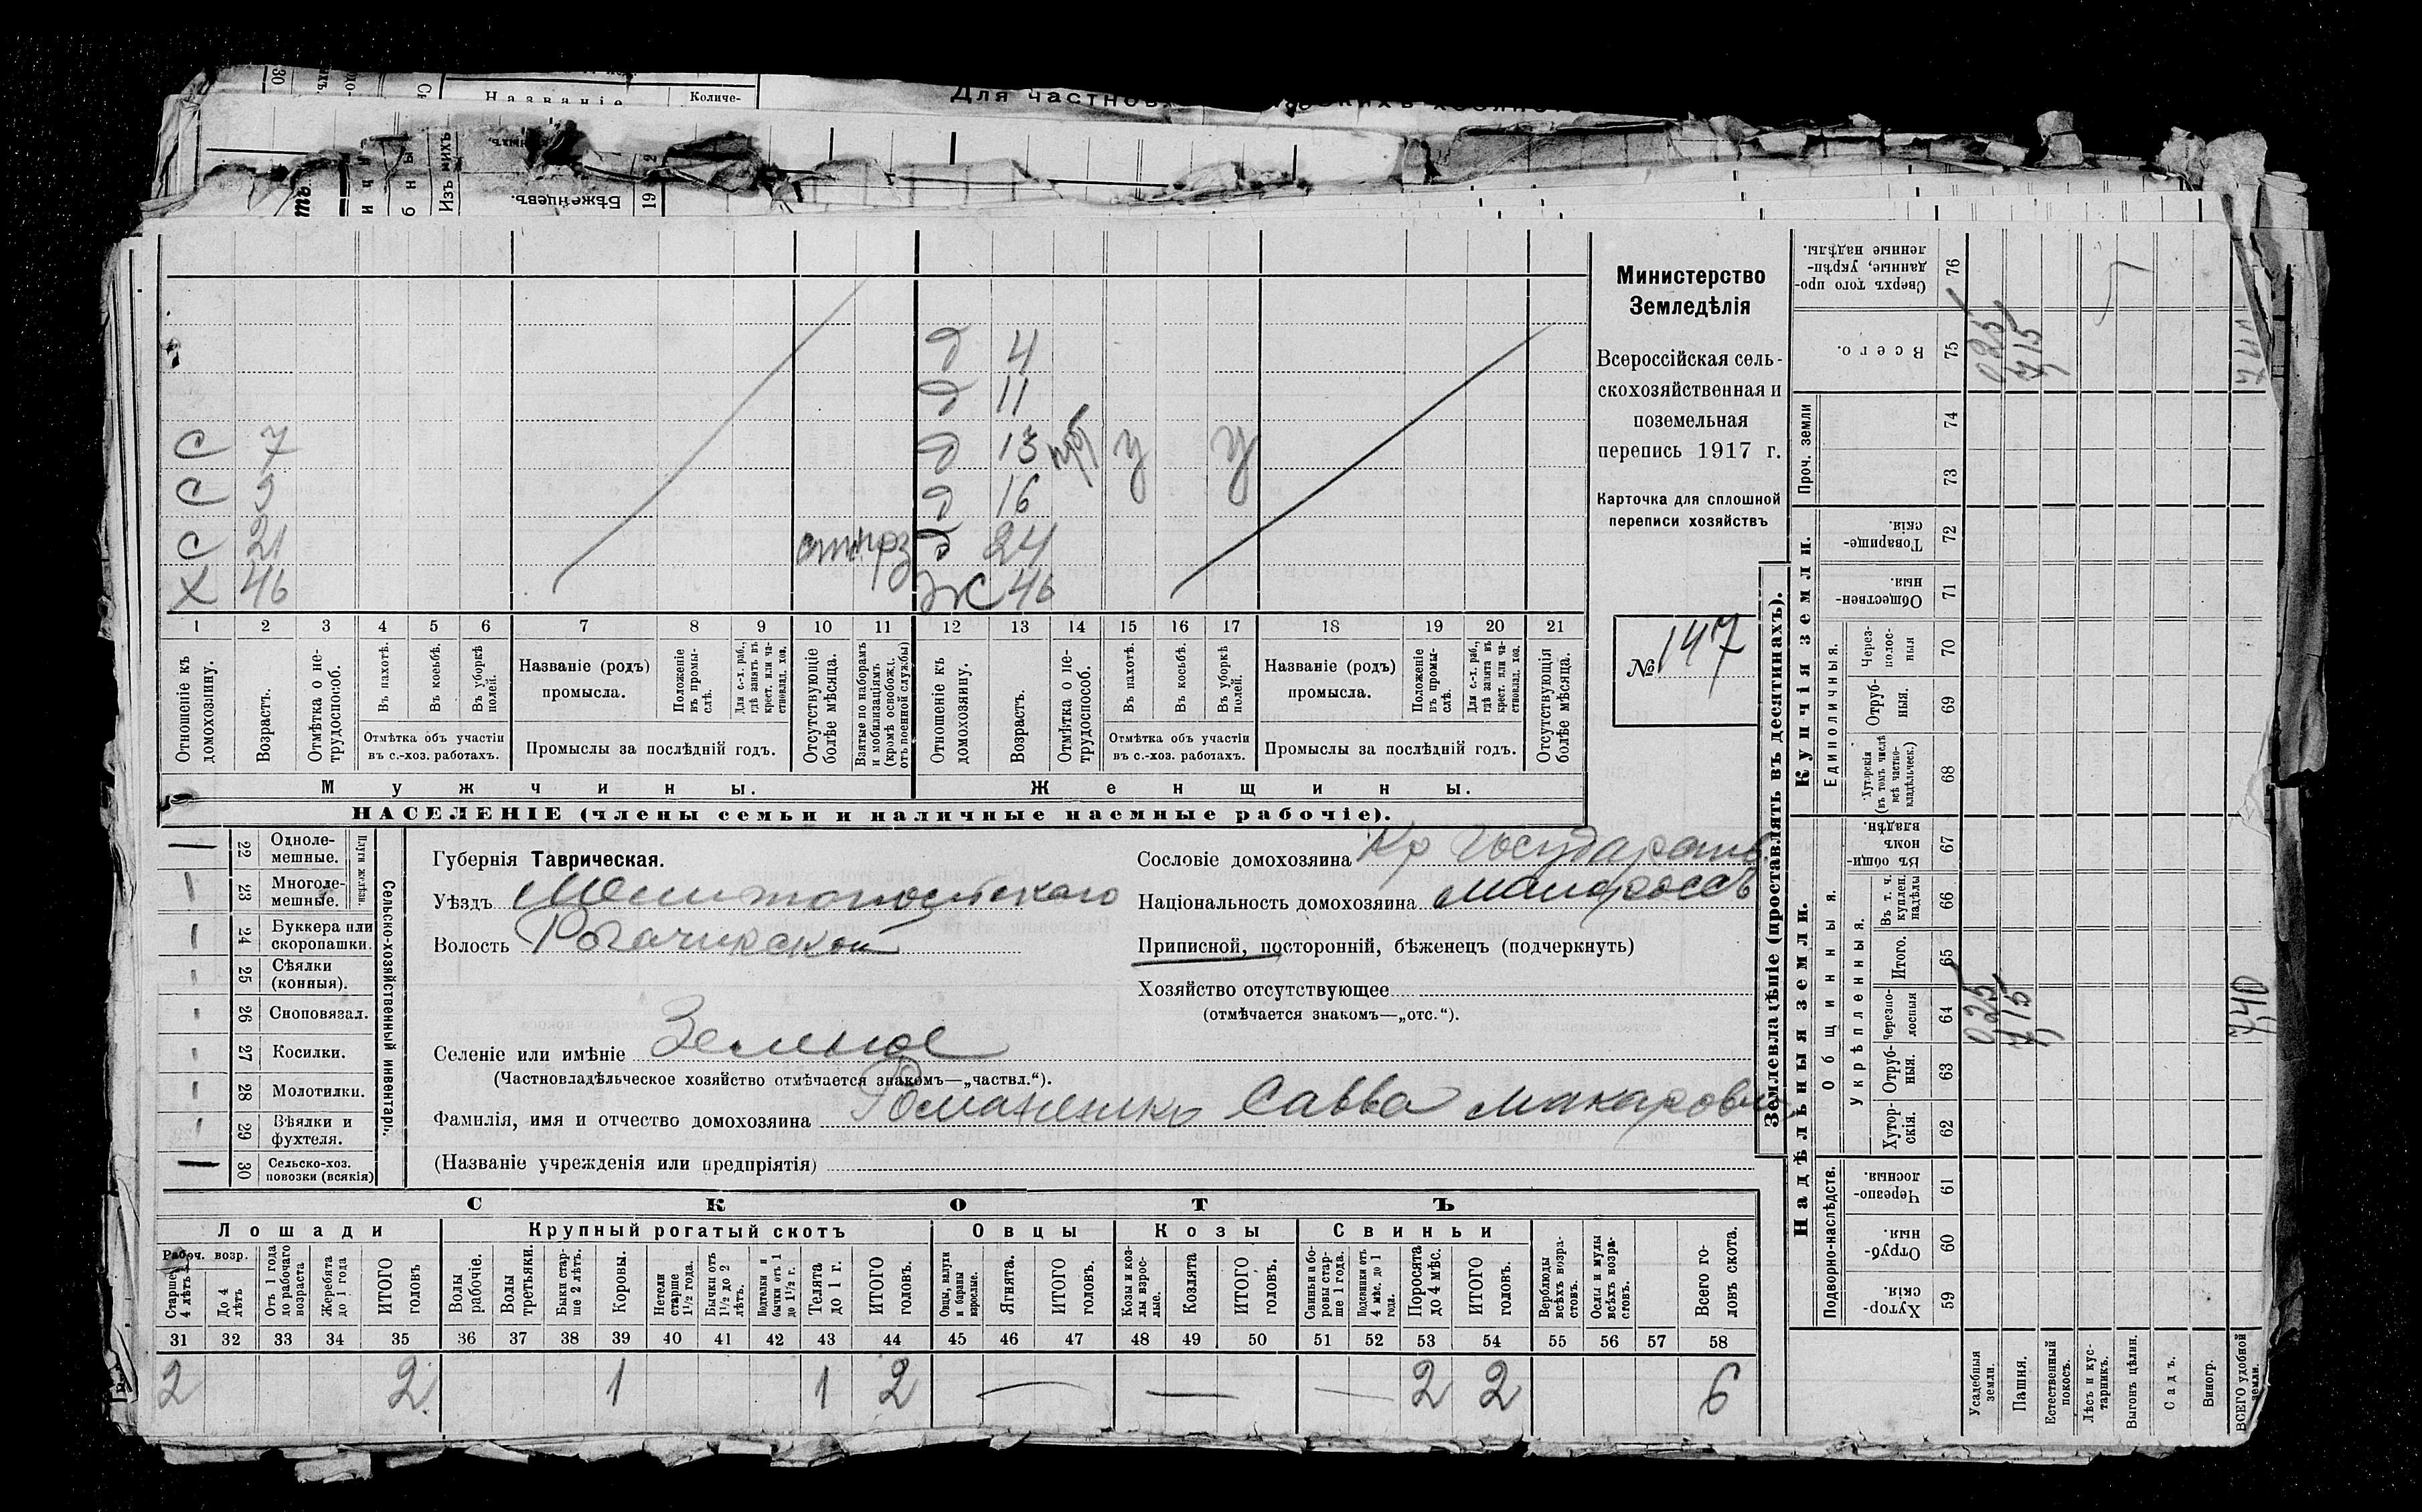 Количе-
Названіе
Для частнов
Изъ нихъ
Бѣженцевъ.
19
д 4
д 11
С 7 д 13 у у
С 9 д 16
С 21 д 24
Х 46 Ж 46
1 2 3 4 5 6 7 8 9 10 11 12 13 14 15 16 17 18 19 20 21
Отношеніе къ домохозяину.
Возрастъ.
Отмѣтка о не-трудоспособ.
Въ пахотѣ.
Въ косьбѣ.
Въ уборкѣ полей.
Отмѣтка объ участіи
въ с.-хоз. работахъ.
Названіе (родъ)
промысла.
Положеніе въ промы-слѣ.
Для с.-х. раб., гдѣ занятъ въ крест. или ча-стновлад. хоз.
Промыслы за послѣдній годъ.
Отсутствующіе болѣе мѣсяца.
Взятые по наборамъ и мобилизаціямъ (кромѣ освобожд. отъ военной службы)
Отношеніе къ домохозяину.
Возрастъ.
Отмѣтка о не-трудоспособ.
Въ пахотѣ.
Въ косьбѣ.
Въ уборкѣ полей.
Отмѣтка объ участіи
въ с.-хоз. работахъ.
Названіе (родъ)
промысла.
Положеніе въ промы-слѣ.
Для с.-х. раб., гдѣ занята въ крест. или ча-стновлад. хоз.
Промыслы за послѣдній годъ.
Отсутствующія болѣе мѣсяца.
Мужчины.
Женщины.
НАСЕЛЕНІЕ (члены семьи и наличные наемные рабочіе).
Министерство
Земледѣлія
Всероссійская сель-
скохозяйственная и
поземельная
перепись 1917 г.
Карточка для сплошной
переписи хозяйствъ
№ 147
Сельско-хозяйственный инвентарь.
Плуги желѣзн.
22 Одноле-
мешные.
23 Многоле-
мешные.
24 Буккера или
скоропашки.
25 Сѣялки
(конныя).
26 Сноповязал.
27 Косилки.
28 Молотилки.
29 Вѣялки и
фухтеля.
30 Сельско-хоз.
повозки (всякія)
Губернія Таврическая.
Уѣздъ Мелитопольскаго
Волость Рогачикской
Селеніе или имѣніе Зеленое
(Частновладѣльческое хозяйство отмѣчается знакомъ—„частвл.“).
Фамилія, имя и отчество домохозяина Романенко Савва Макаровъ
(Названіе учрежденія или предпріятія)
Сословіе домохозяина Кр Государств
Національность домохозяина малороссъ
Приписной, посторонній, бѣженецъ (подчеркнуть)
Хозяйство отсутствующее
(отмѣчается знакомъ—„отс.“).
СКОТЪ
Лошади
Крупный рогатый скотъ
Овцы
Козы
Свиньи
Рабоч. возр.
Старше 4 лѣтъ
До 4 лѣтъ
Отъ 1 года до рабочаго возраста
Жеребята до 1 года
ИТОГО головъ
Волы рабочіе.
Волы третьяки.
Быки стар-ше 2 лѣтъ.
Коровы.
Нетели старше 1½ года.
Бычки отъ 1½ до 2 лѣтъ.
Подтелки и бычки отъ 1 до 1½ г.
Телята до 1 г.
ИТОГО головъ.
Овцы, валухи и бараны взрослые.
Ягнята.
ИТОГО головъ.
Козы и коз-лы взрос-лые.
Козлята
ИТОГО головъ.
Свиньи и бо-ровы стар-ше 1 года.
Подсвинки отъ 4 мѣс. до 1 года.
Поросята до 4 мѣс.
ИТОГО головъ.
Верблюды всѣхъ возра-стовъ.
Ослы и мулы всѣхъ возра-стовъ.
Всего го-ловъ скота.
31 32 33 34 35 36 37 38 39 40 41 42 43 44 45 46 47 48 49 50 51 52 53 54 55 56 57 58
2 2 1 1 2 — — — 2 2 6
Землевладѣніе (проставлять въ десятинахъ).
Купчія земли.
Надѣльныя земли.
Сверхъ того про-данные, укрѣп-ленные надѣлы. 76
Всего. 75
Проч. земли
74
73
Товарище-скія. 72
Обществен-ныя. 71
Единоличныя.
Через-полос-ныя 70
Отруб-ныя. 69
Хуторскія (въ томъ числѣ всѣ частно-владѣльческ.) 68
Общинныя.
Въ общи-номъ владѣн. 67
Укрѣпленныя.
Въ т. ч. куплен. надѣлы 66
Итого. 65
Черезпо-лосныя 64
Отруб-ныя. 63
Хутор-скія. 62
Подворно-наслѣдств.
Черезпо-лосныя. 61
Отруб-ныя 60
Хутор-скія. 59
Усадебныя земли.
Пашня.
Естественный покосъ.
Лѣсъ и кус-тарникъ.
Выгонъ цѣлин.
Садъ.
Виногр.
ВСЕГО удобной земли.
0,25
7,15
7,40
0,25
7,15
7,40